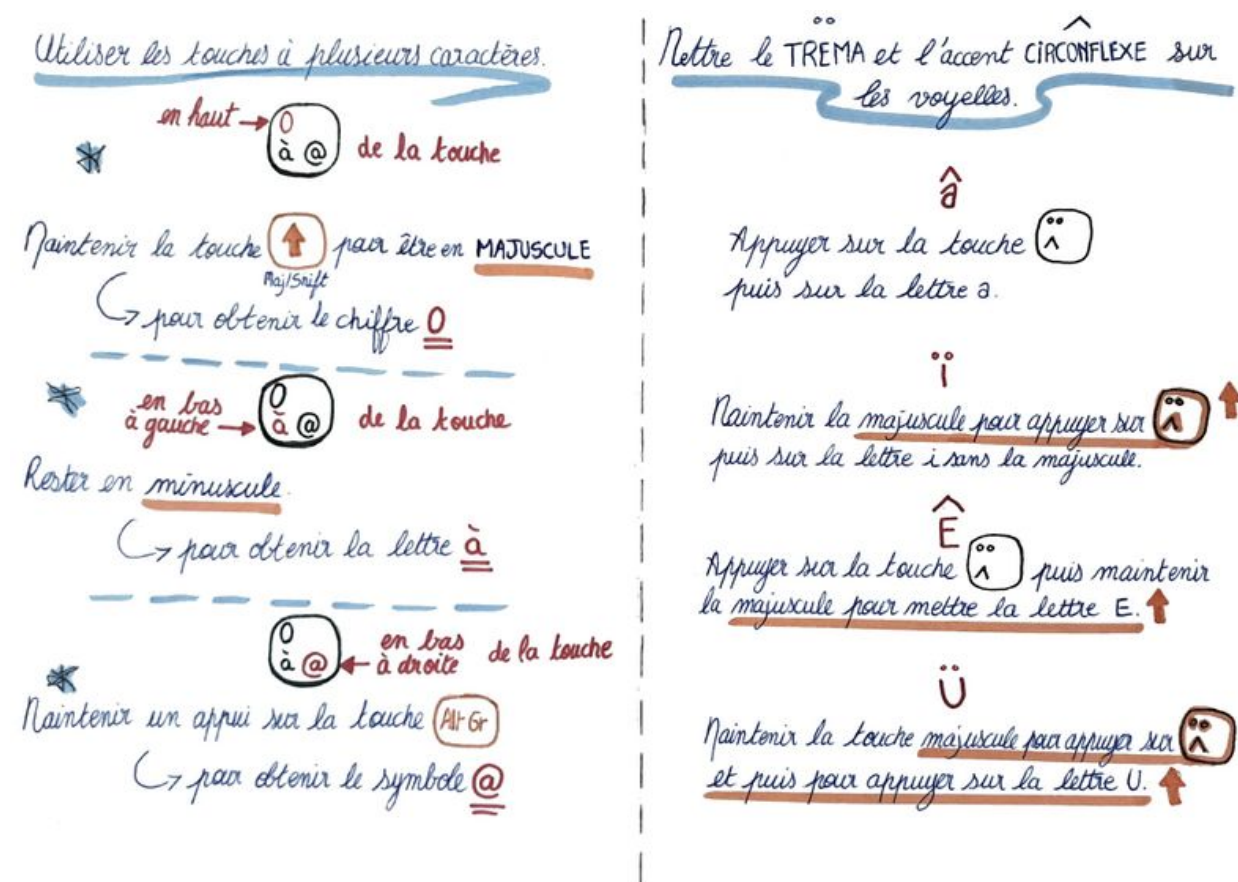 Utiliser les touches à plusieurs caractères.
en haut → 0
à @ de la touche
Maintenir la touche ↑ pour être en MAJUSCULE
Maj/Shift
↪ pour obtenir le chiffre 0
en bas 0
à gauche → à @ de la touche
Rester en minuscule.
↪ pour obtenir la lettre à
0 en bas
à @ ← à droite de la touche
Maintenir un appui sur la touche Alt Gr
↪ pour obtenir le symbole @
Mettre le TREMA et l'accent CIRCONFLEXE sur
les voyelles.
â
Appuyer sur la touche ¨ ^
puis sur la lettre a.
ï
Maintenir la majuscule pour appuyer sur ¨ ^ ↑
puis sur la lettre i sans la majuscule.
Ê
Appuyer sur la touche ¨ ^ puis maintenir
la majuscule pour mettre la lettre E. ↑
Ü
Maintenir la touche majuscule pour appuyer sur ¨ ^
et puis pour appuyer sur la lettre U. ↑